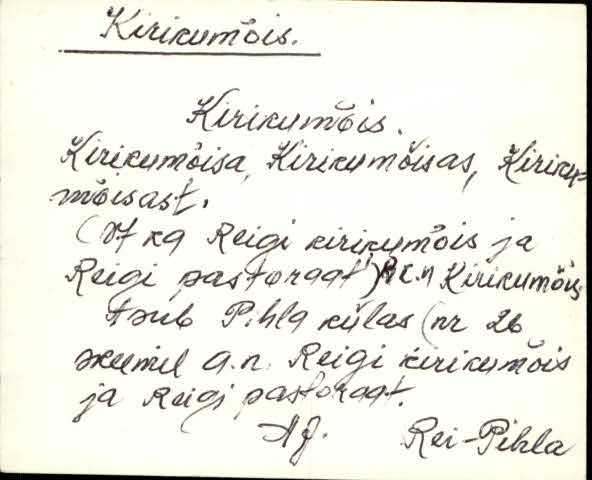 Kirikumõis.
Kirikumõis.
Kirikumõisa, Kirikumõisas, Kiriku-
mõisast.
(Vt ka Reigi kirikumõis ja
Reigi pastoraat) R.k.n Kirikumõis
asub Pihla külas (nr 26
skeemil a.n. Reigi kirikumõis
ja Reigi pastoraat.
Rei-Pihla